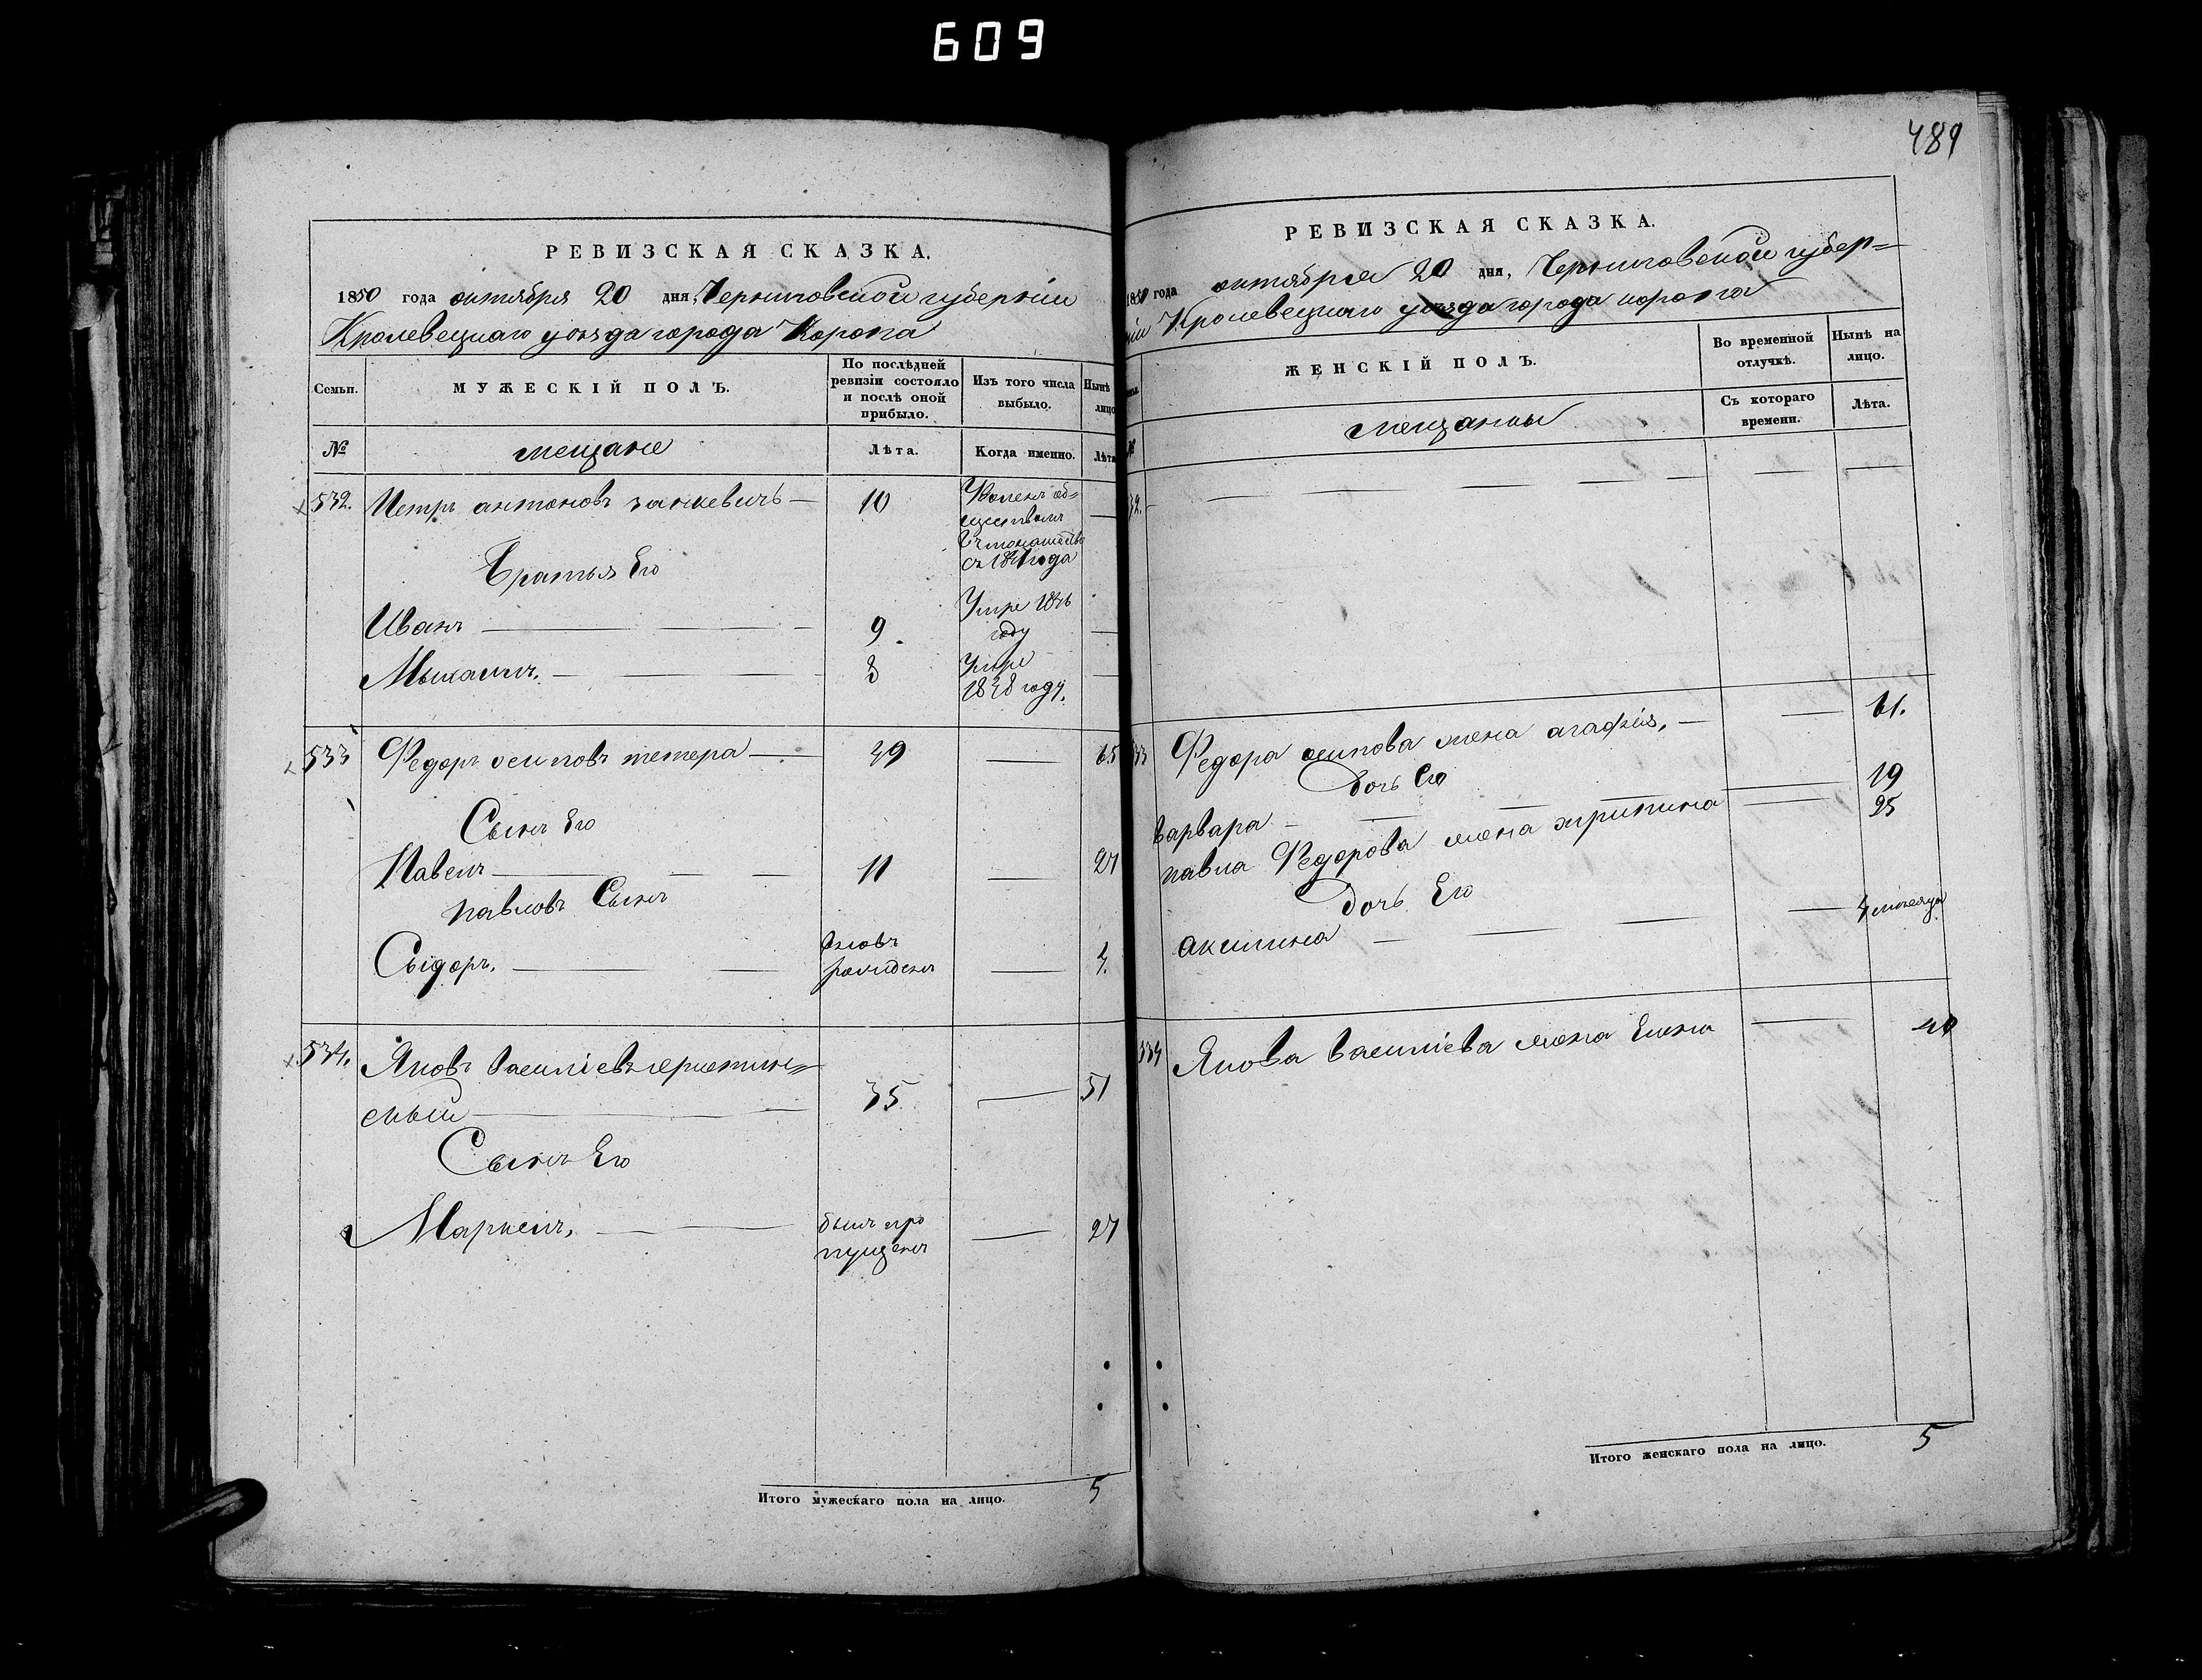 609
489
РЕВИЗСКАЯ СКАЗКА.
1850 года октября 20 дня, Черниговской губерніи
Кролевецкаго уѣзда города Коропа
Семьи.
МУЖЕСКІЙ ПОЛЪ.
По послѣдней ревизіи состояло и послѣ оной прибыло.
Изъ того числа выбыло.
Нынѣ лицо
№
мещане
Лѣта.
Когда именно.
Лѣта
532. Петръ антоновъ занкевичъ — 10
Уволенъ об=
ществомъ
въ монашество
съ 1841 года
Братья Его
Иванъ — 9. Умре 1846
году
Мыхаилъ. — 8 Умре
1848 году.
533 Федоръ осиповъ тетера — 49 — 65
Сынъ Его
Павелъ — 11 — 27
павловъ Сынъ
Сыдоръ. — вновъ
рожденъ — 4.
534. Яковъ Васипіевъ
ский — 35 — 51
Сынъ Его
Маркелъ. — былъ про
пущенъ — 27
Итого мужескаго пола на лицо. 5
РЕВИЗСКАЯ СКАЗКА.
1850 года октября 20 дня, Черниговской губер=
ніи Кролевецкаго уѣзда города коропа
ЖЕНСКІЙ ПОЛЪ.
Во временной отлучкѣ.
Нынѣ на лицо.
№
мещанки
Съ котораго времени.
Лѣта.
32.
33 Федора осипова жена агафія, — 61.
дочь Его
варвара — 19
павла Федорова жена 25
дочь Его
акилина — 4 месяца
534 Якова василіева жена Елена — 40
Итого женскаго пола на лицо. 5